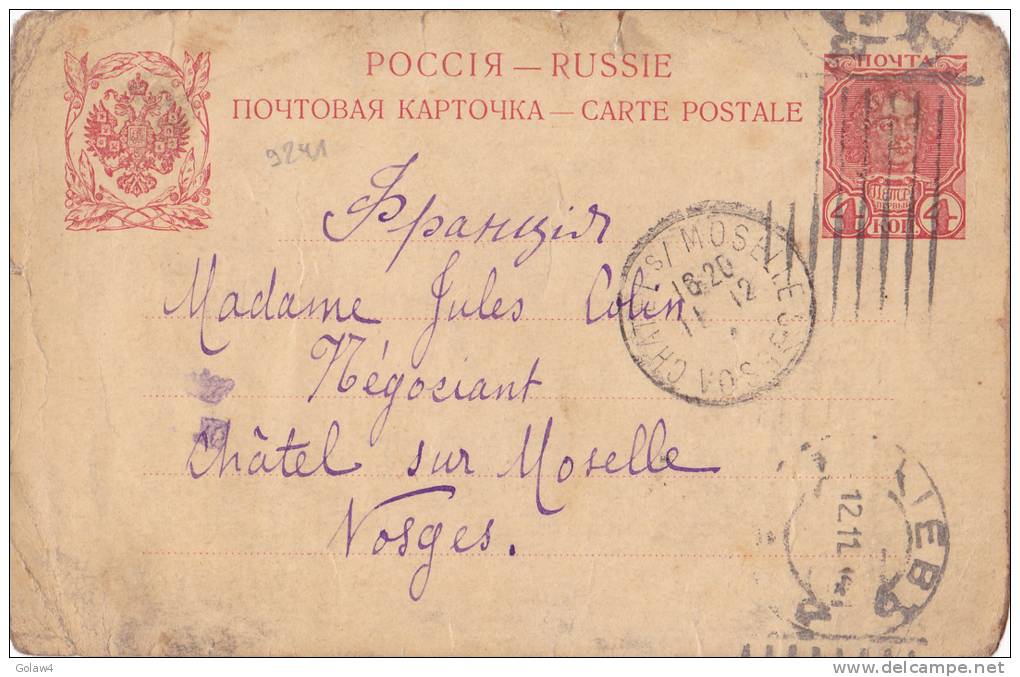 РОССІЯ — RUSSIE
ПОЧТОВАЯ КАРТОЧКА — CARTE POSTALE
ПОЧТА
4 4
КОП.
9241
Франція
Madame Jules Colin
Négociant
Châtel sur Moselle
Vosges.
CHATEL S/ MOSELLE
VOSGES
18·20
11 12
ІЕВЪ
12.11
Golaw4
delcampe.net